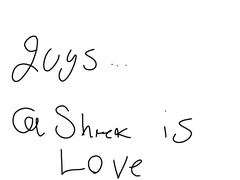 guys...
@Shrek is
Love